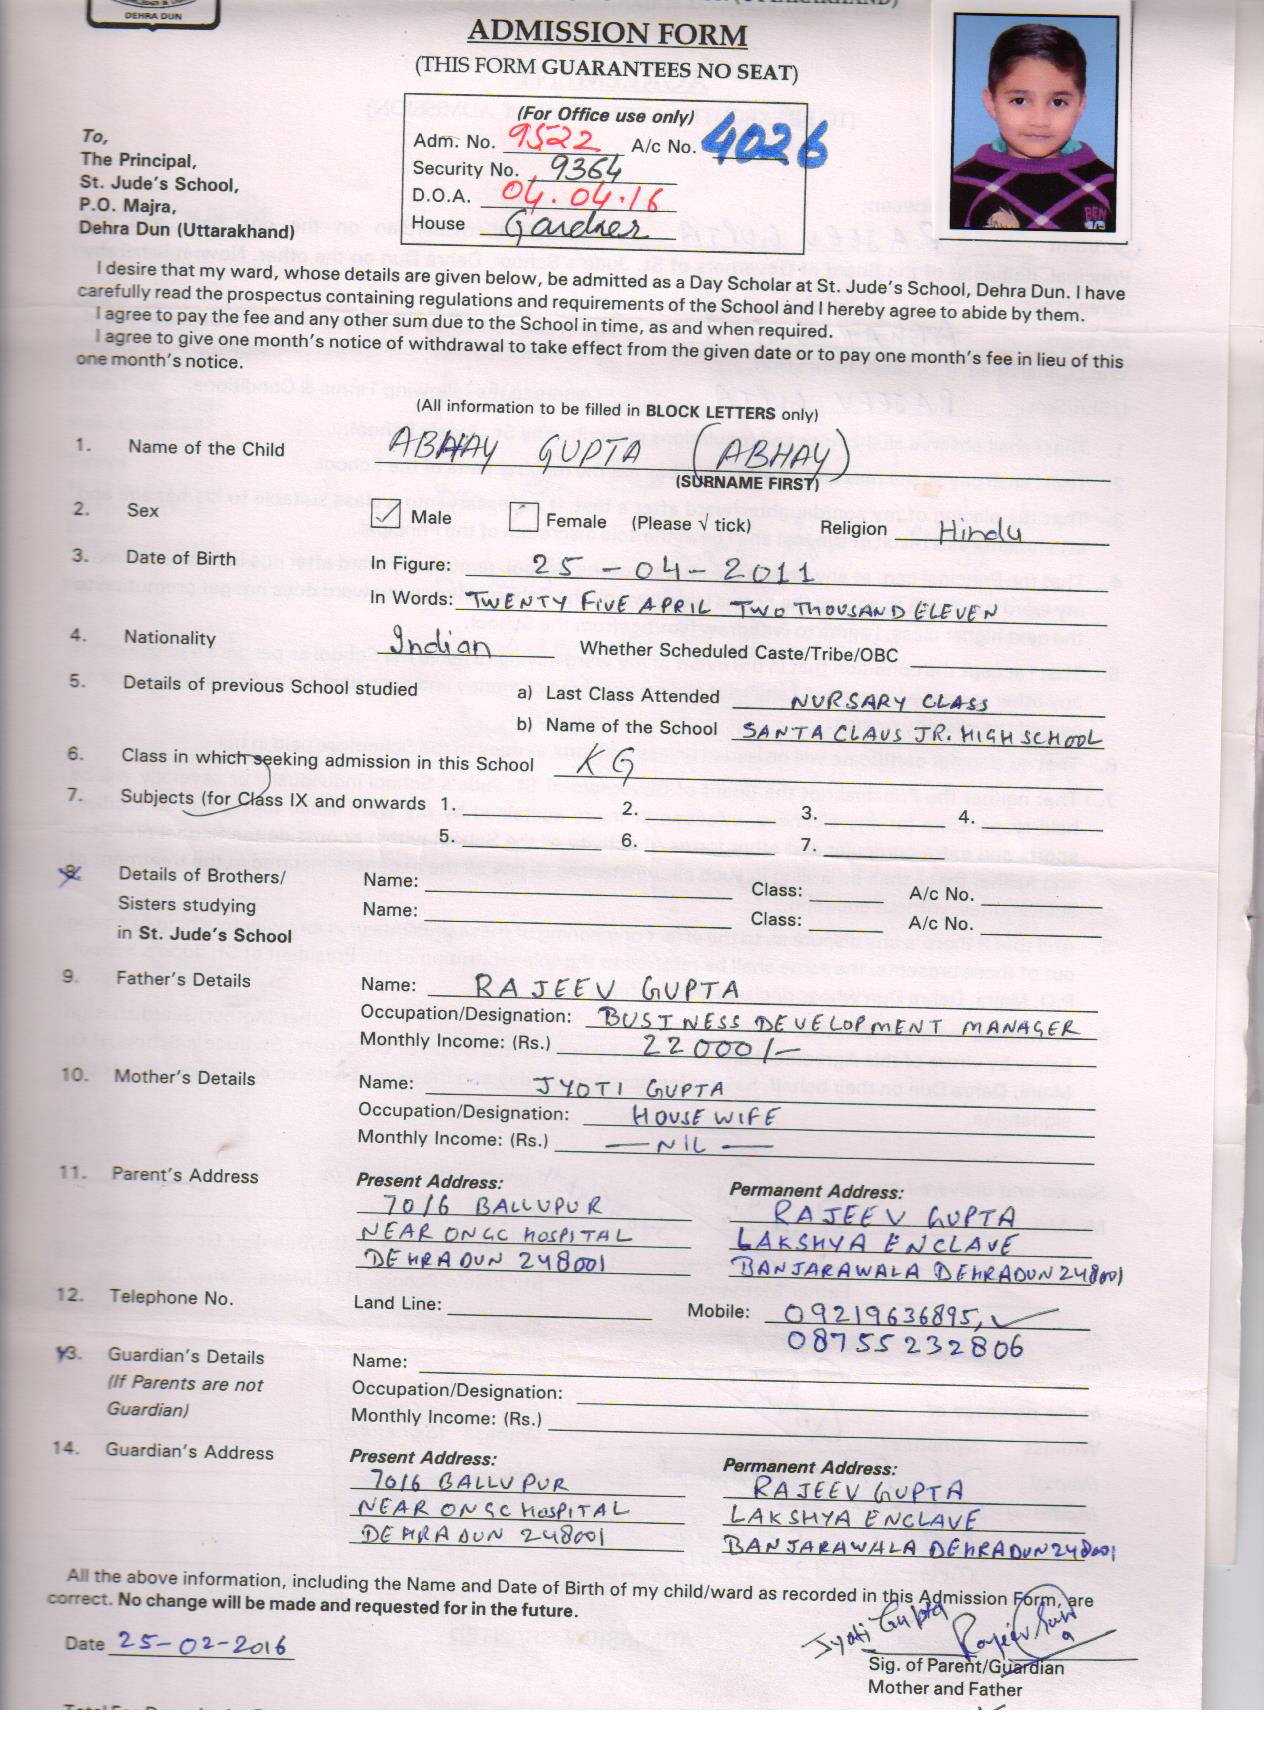 DEHRA DUN
ADMISSION FORM
(THIS FORM GUARANTEES NO SEAT)
(For Office use only)
Adm. No. 9522 A/c No. 4026
Security No. 9364
D.O.A. 04.04.16
House Gardner
To,
The Principal,
St. Jude's School,
P.O. Majra,
Dehra Dun (Uttarakhand)
I desire that my ward, whose details are given below, be admitted as a Day Scholar at St. Jude's School, Dehra Dun. I have
carefully read the prospectus containing regulations and requirements of the School and I hereby agree to abide by them.
I agree to pay the fee and any other sum due to the School in time, as and when required.
I agree to give one month's notice of withdrawal to take effect from the given date or to pay one month's fee in lieu of this
one month's notice.
(All information to be filled in BLOCK LETTERS only)
1. Name of the Child ABHAY GUPTA (ABHAY)
(SURNAME FIRST)
2. Sex Male Female (Please √ tick) Religion Hindu
3. Date of Birth In Figure: 25-04-2011
In Words: TWENTY FIVE APRIL TWO THOUSAND ELEVEN
4. Nationality Indian Whether Scheduled Caste/Tribe/OBC
5. Details of previous School studied a) Last Class Attended NURSARY CLASS
b) Name of the School SANTA CLAUS JR. HIGH SCHOOL
6. Class in which seeking admission in this School KG
7. Subjects (for Class IX and onwards 1. 2. 3. 4.
5. 6. 7.
8. Details of Brothers/ Name: Class: A/c No.
Sisters studying Name: Class: A/c No.
in St. Jude's School
9. Father's Details Name: RAJEEV GUPTA
Occupation/Designation: BUSINESS DEVELOPMENT MANAGER
Monthly Income: (Rs.) 22000/-
10. Mother's Details Name: JYOTI GUPTA
Occupation/Designation: HOUSE WIFE
Monthly Income: (Rs.) — NIL —
11. Parent's Address Present Address: Permanent Address:
70/6 BALLUPUR RAJEEV GUPTA
NEAR ONGC HOSPITAL LAKSHYA ENCLAVE
DEHRADUN 248001 BANJARAWALA DEHRADUN 248001
12. Telephone No. Land Line: Mobile: 09219636895,
08755232806
13. Guardian's Details Name:
(If Parents are not Occupation/Designation:
Guardian) Monthly Income: (Rs.)
14. Guardian's Address Present Address: Permanent Address:
70/6 BALLUPUR RAJEEV GUPTA
NEAR ONGC HOSPITAL LAKSHYA ENCLAVE
DEHRADUN 248001 BANJARAWALA DEHRADUN 248001
All the above information, including the Name and Date of Birth of my child/ward as recorded in this Admission Form, are
correct. No change will be made and requested for in the future.
Date 25-02-2016 Jyoti Gupta Rajeev
Sig. of Parent/Guardian
Mother and Father